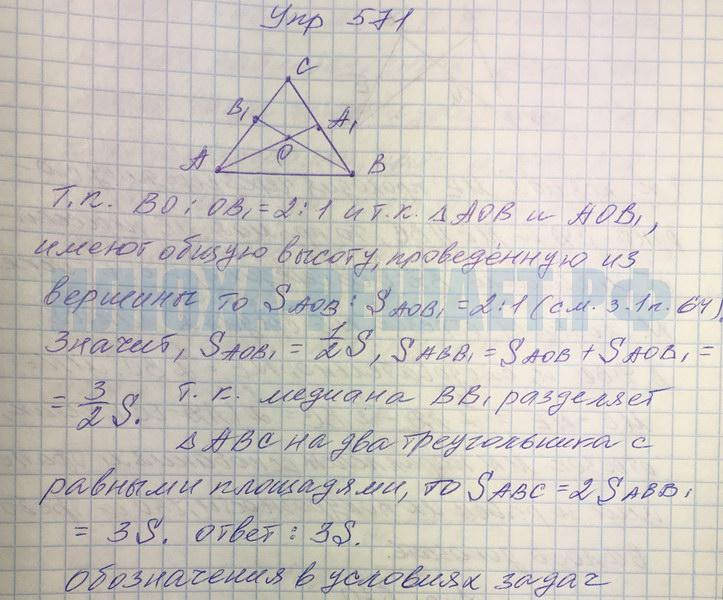 Упр 571
C
B₁
A₁
O
A
B
Т.к. BO : OB₁ = 2:1 и т.к. △AOB и AOB₁,
имеют общую высоту, проведённую из
вершины то S AOB : S AOB₁ = 2:1 (см. з.1 п. 64).
Значит, S AOB₁ = 1/2 S, S ABB₁ = S AOB + S AOB₁ =
= 3/2 S. Т.к. медиана BB₁ разделяет
△ABC на два треугольника с
равными площадями, то S ABC = 2S ABB₁
= 3S. ответ : 3S.
обозначения в условиях задач